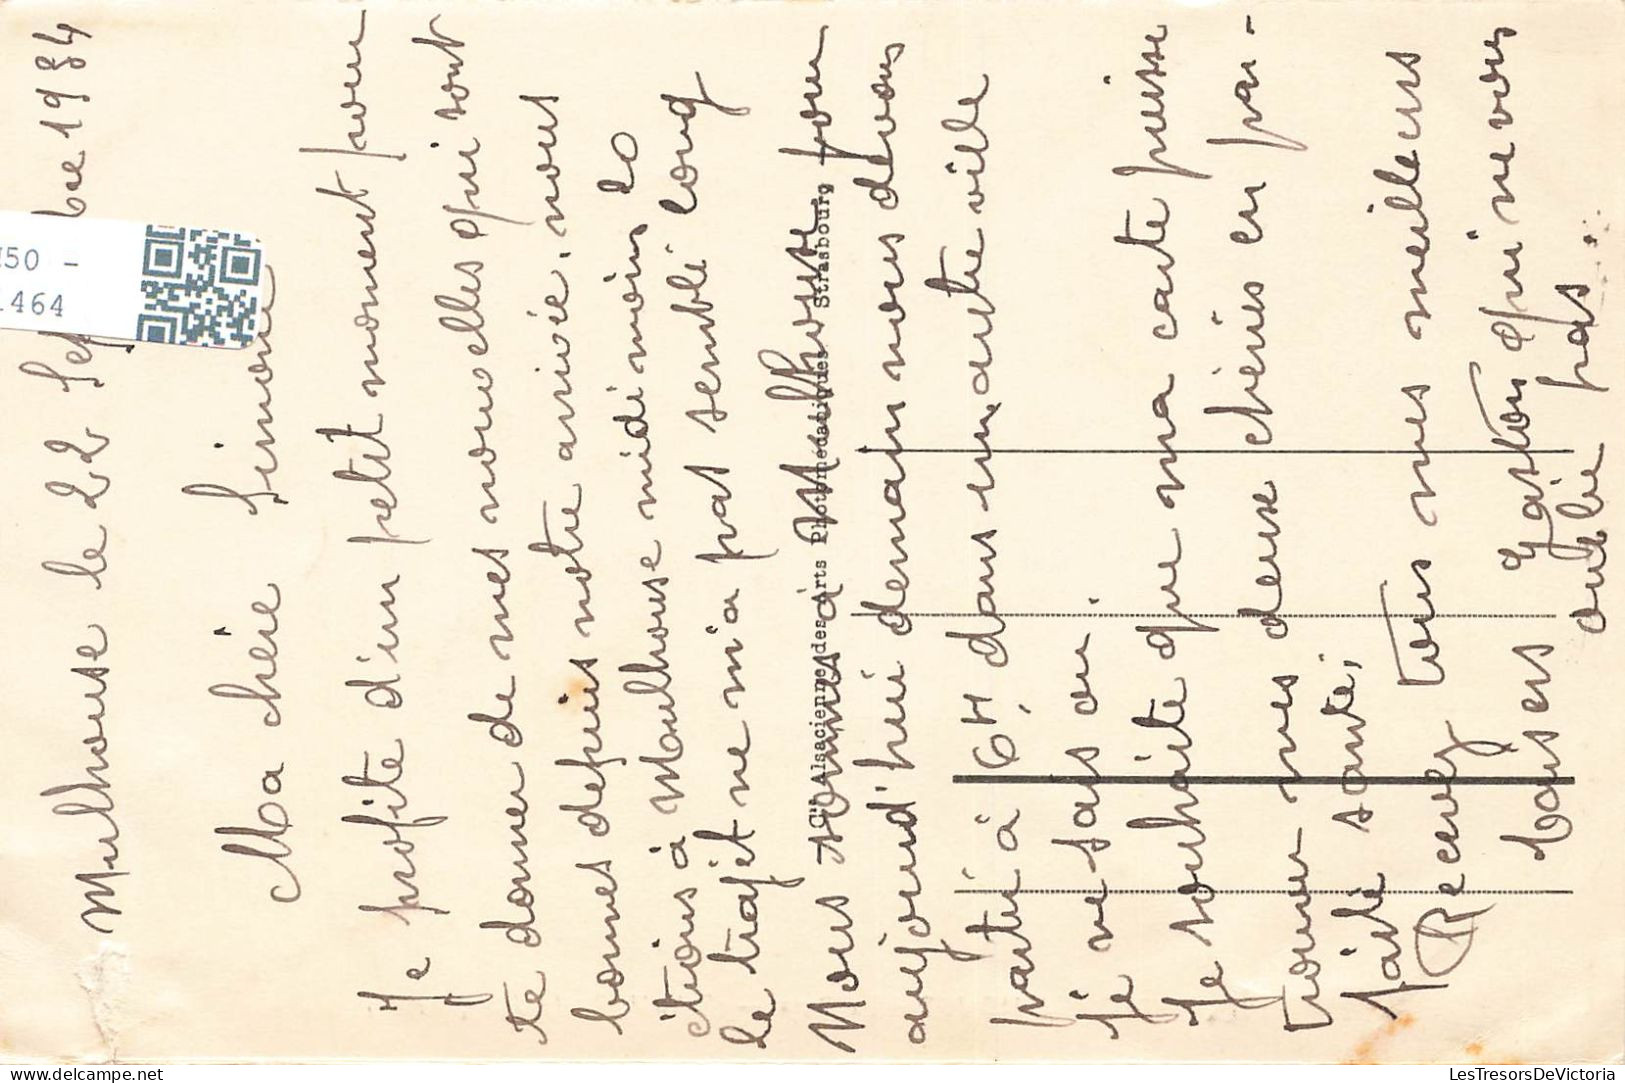 Mulhouse le 22 Se bre 1934
Ma chère Simone
Je profite d'un petit moment pour
te donner de mes nouvelles qui sont
bonnes depuis notre arrivée, nous
étions à Moulhouse midi moins 20
le trajet ne m'a pas semblé long
Nous sommes à Mulhouse pour
aujourd'hui demain nous devons
partir à 6H, dans un, autre ville
je ne sais où.
Je souhaite que ma carte puisse
trouver mes deux chéries en par-
faite santé,
Recevez tous mes meilleurs
baisers Gaston qui ne vous
oublie pas.
Cie Alsacienne des Arts Photomécaniques Strasbourg
50 -
1464
LesTresorsDeVictoria.com
LesTresorsDeVictoria